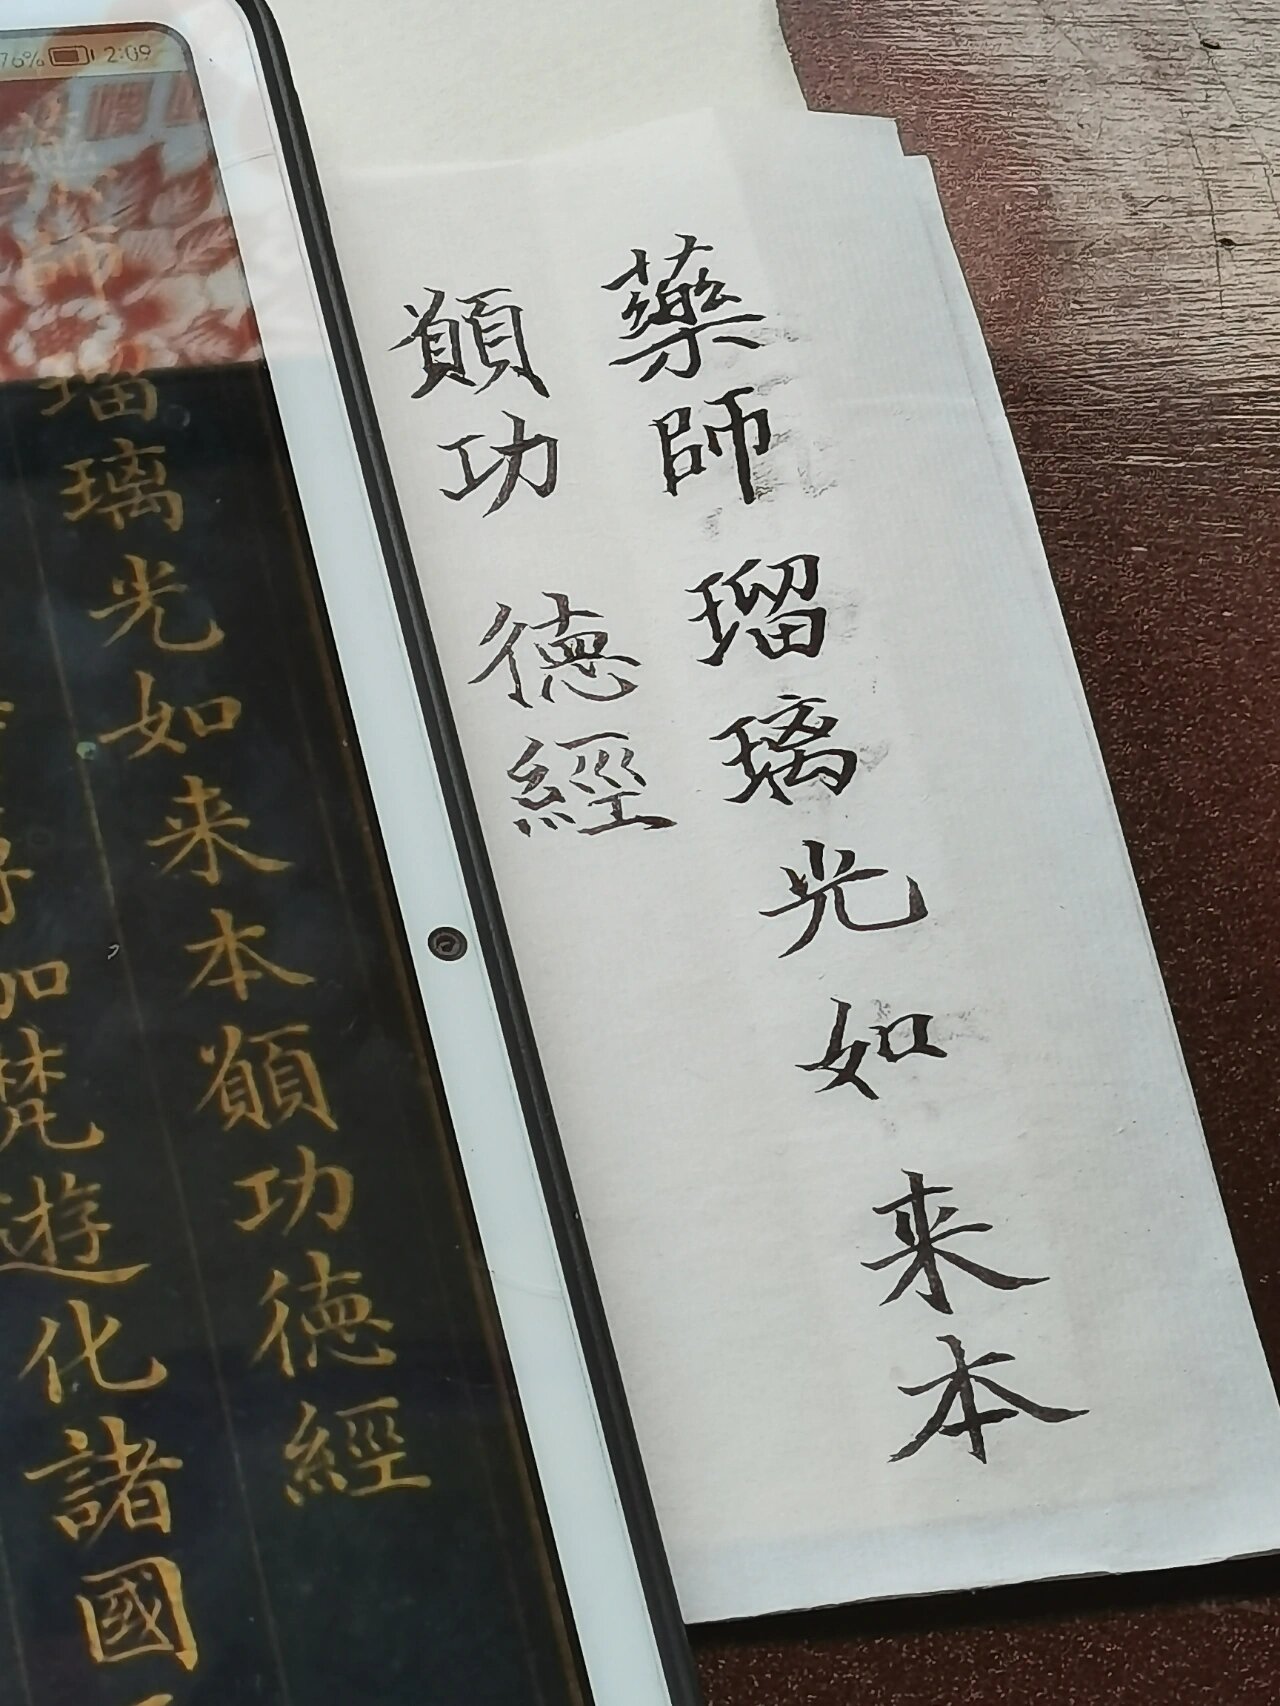 76% 2:09
藥師瑠璃光如来本
願功德經
瑠璃光如来本願功德經
梵遊化諸國